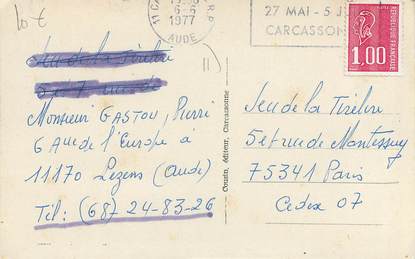 10 €
11 CA
6-6
1977
AUDE
R.P.
27 MAI - 5 J
CARCASSON
REPUBLIQUE FRANCAISE
1,00
Jeu de la Tirelire
Monsieur GASTOU, Pierre
6 Aue de l'Europe à
11170 Lezens (Aude)
Tél: (68) 24-83-26
Cousin, éditeur, Carcassonne
Jeu de la Tirelire
5 et rue de Montessuy
75341 Paris
Cedex 07